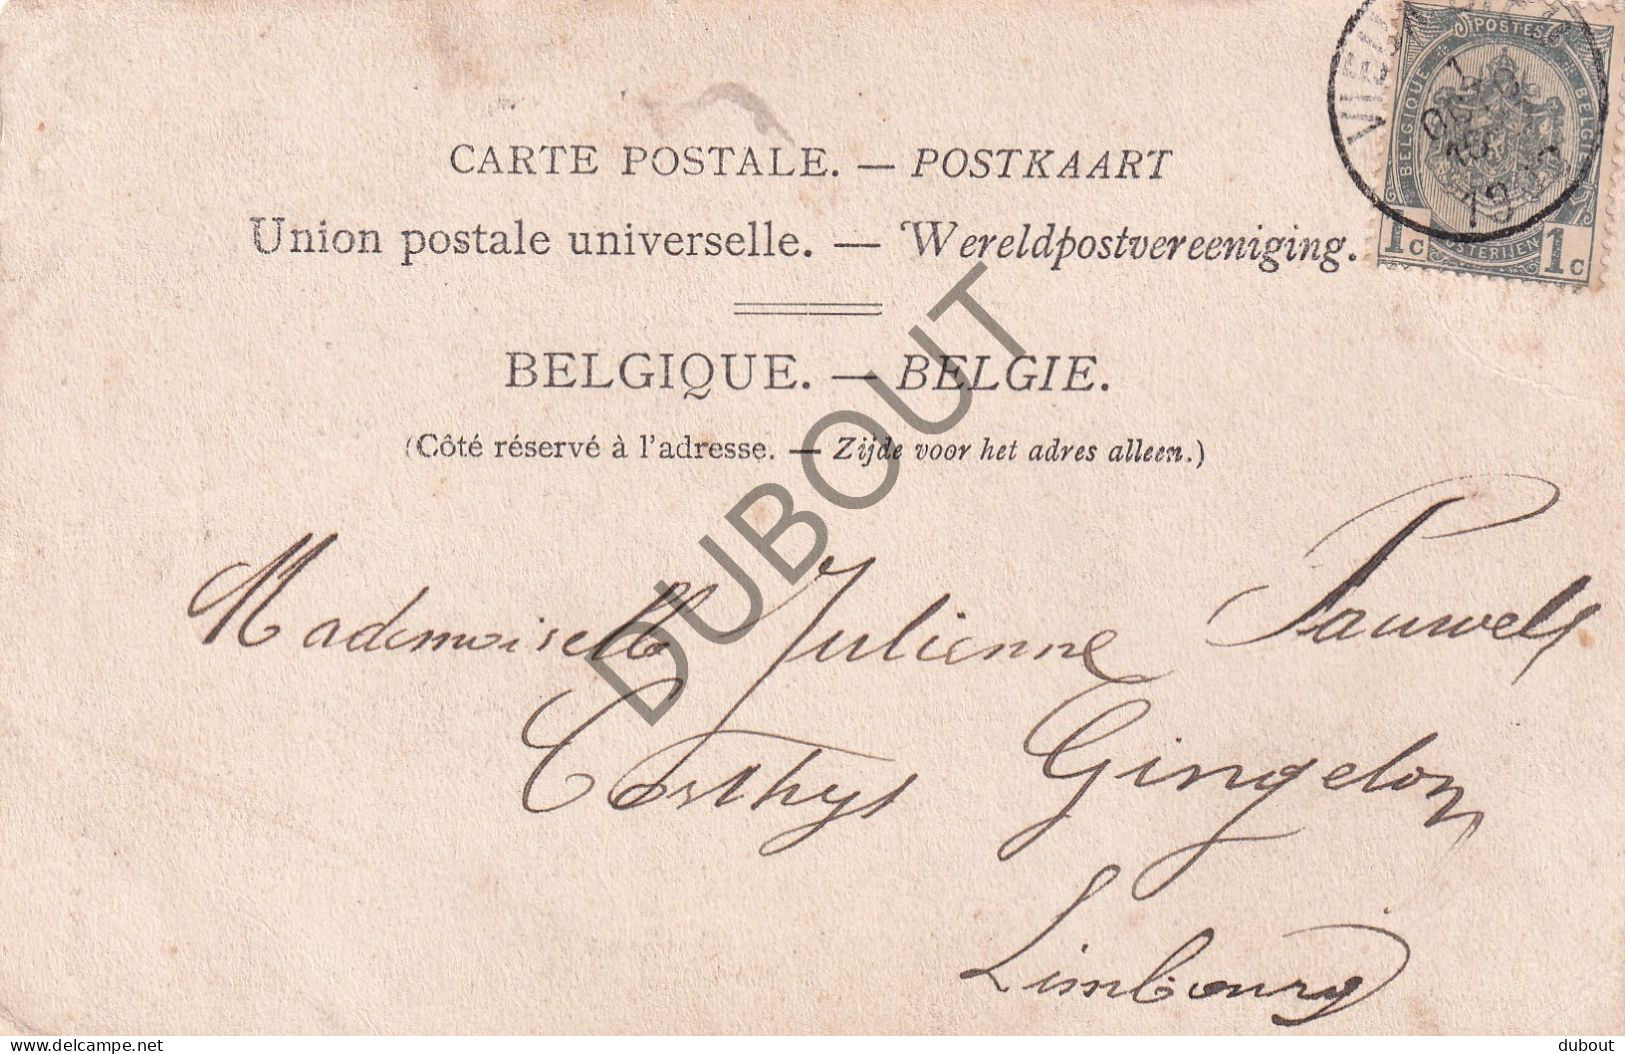 CARTE POSTALE. — POSTKAART
Union postale universelle. — Wereldpostvereeniging.
BELGIQUE. — BELGIE.
(Côté réservé à l'adresse. — Zijde voor het adres alleen.)
POSTES
BELGIQUE BELGIË
1c 1c
DUBOUT
Mademoiselle Julienne Pauwels
Gingelom
Limbourg
delcampe.net
dubout